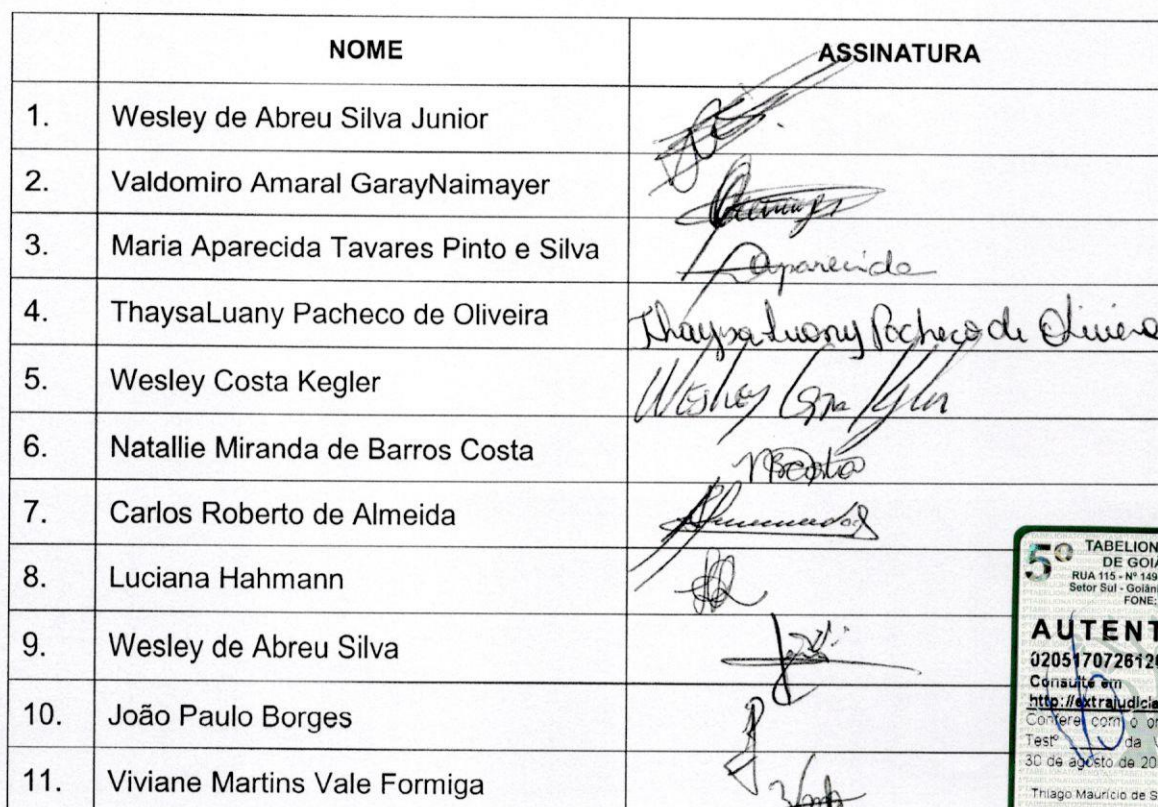 NOME ASSINATURA
1. Wesley de Abreu Silva Junior
2. Valdomiro Amaral GarayNaimayer
3. Maria Aparecida Tavares Pinto e Silva Aparecida
4. ThaysaLuany Pacheco de Oliveira Thaysa Luany Pacheco de Oliveira
5. Wesley Costa Kegler Wesley Costa Kegler
6. Natallie Miranda de Barros Costa
7. Carlos Roberto de Almeida
8. Luciana Hahmann
9. Wesley de Abreu Silva
10. João Paulo Borges
11. Viviane Martins Vale Formiga
5º TABELION
DE GOIÂ
RUA 115 - Nº 149
Setor Sul - Goiân
FONE:
AUTENT
0205170726120
Consulte em
http://extrajudicia
Confere com o or
Testº da
30 de agosto de 20
Thiago Maurício de S